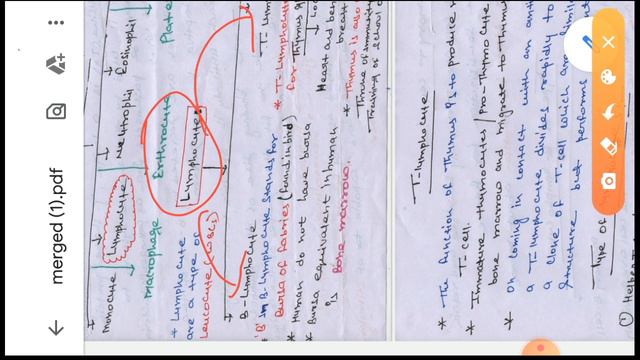 merged (1).pdf
Monocyte Lymphocyte Neutrophil Eosinophil
Macrophage Erthrocyte Plate
+ Lymphocyte Lymphocyte:
are a type of
Leucocyte (WBCs)
B-Lymphocyte T-Lym
'B' in B-Lymphocyte stands for
Bursa of fabrics (found in bird)
* Human do not have bursa
* Bursa equivalent in human
is Bone marrow.
* T-Lymphocyt
for Thymus g
Loc
Heart and
* Thymus is also
Throne of immunity
Training of school o
T-Lymphocyte
* The function of Thymus is to produce
T-cell.
* Immature thymocytes / Pro-Thymocyte
bone marrow and migrate to Thymu
* On coming in contact with an anti
a T-lymphocyte divides rapidly to
a clone of T-cell which are simil
structure but performs
Type of
① Helper T